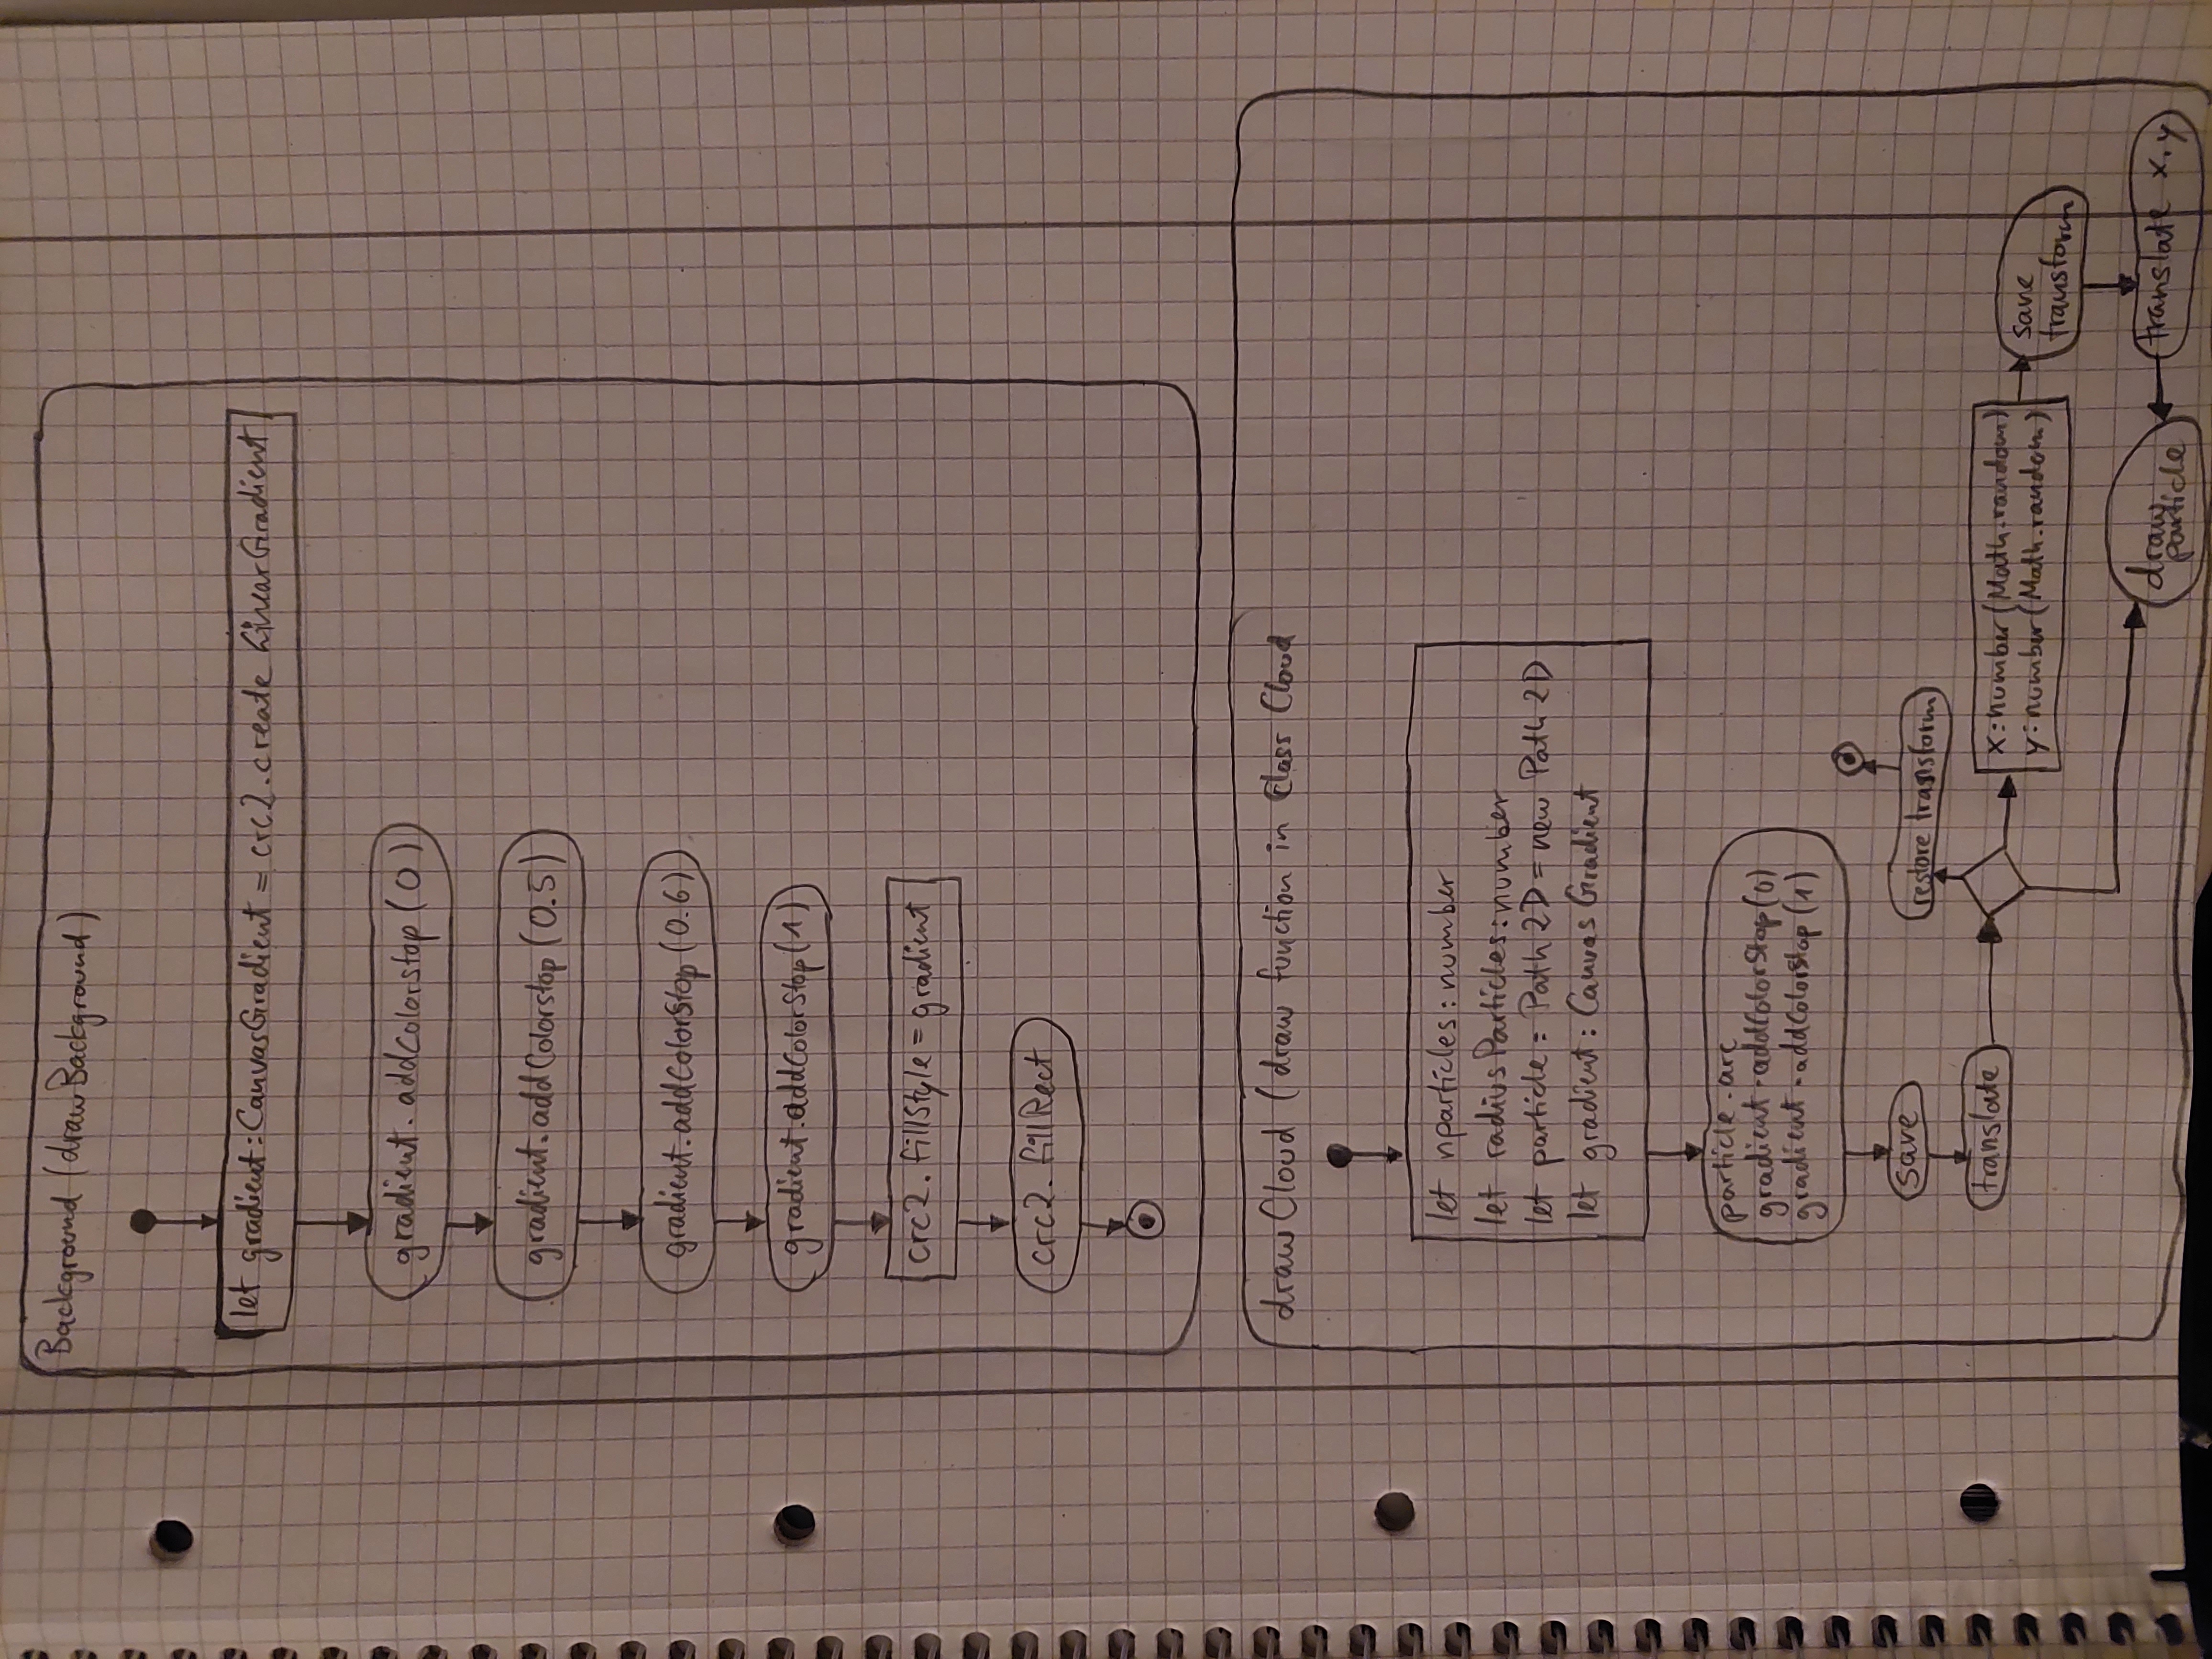 Background (drawBackground)
let gradient:CanvasGradient = crc2.create LinearGradient
gradient.addColorstop(0)
gradient.addColorstop(0.5)
gradient.addColorStop(0.6)
gradient.addColorStop(1)
crc2.fillStyle = gradient
crc2.fillRect
drawCloud (draw function in Class Cloud
let nparticles:number
let radiusParticles:number
let particle: Path2D = new Path2D
let gradient: CanvasGradient
particle.arc
gradient.addColorStop(0)
gradient.addColorStop(1)
save
restore transform
translate
x:number(Math.random)
y:number(Math.random)
save
transform
draw
particle
translate x,y